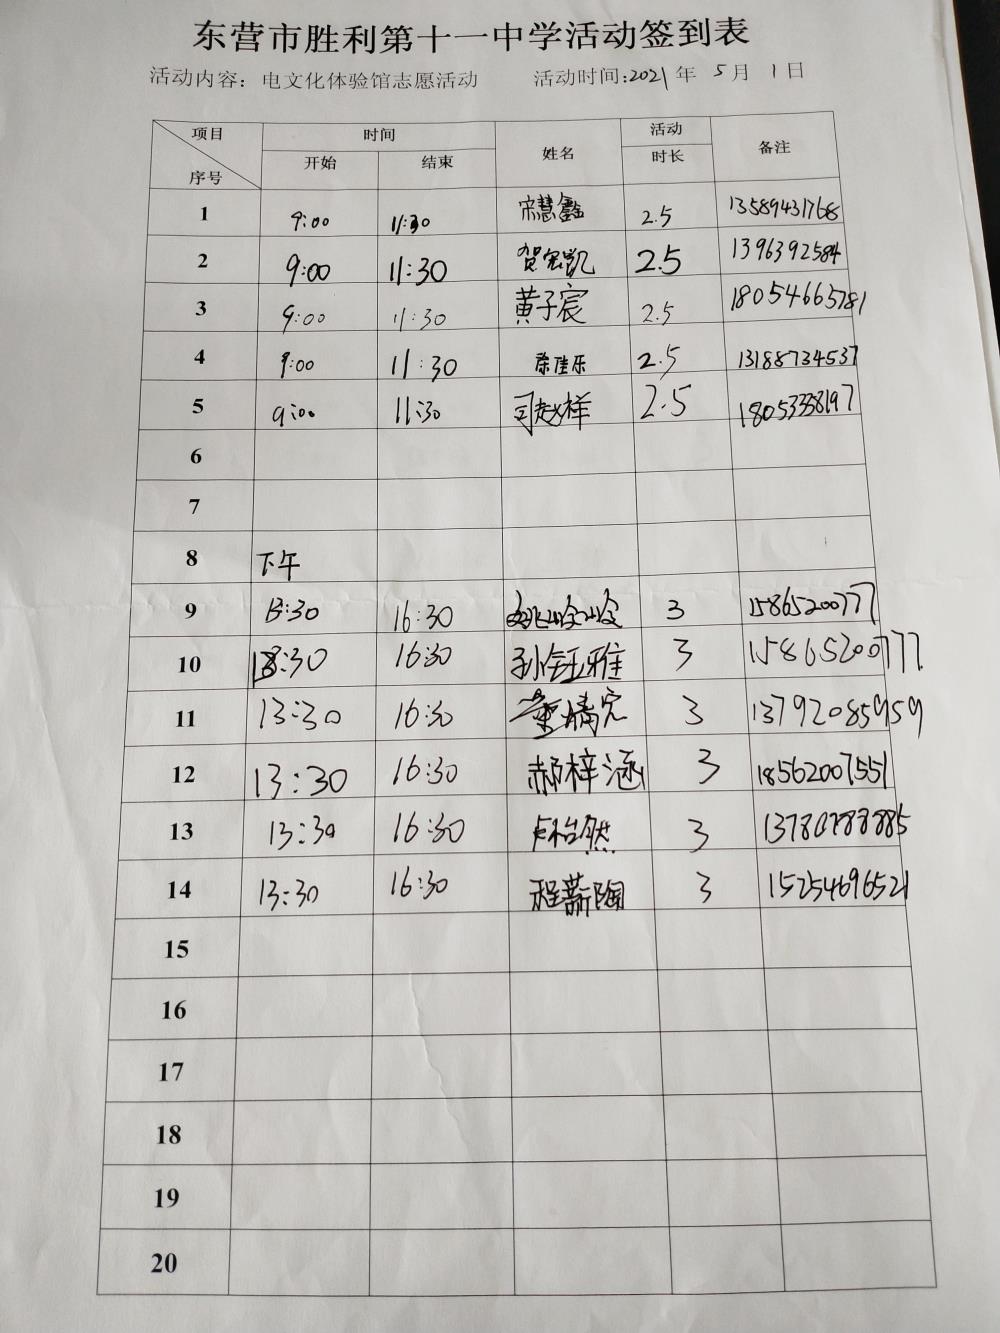 东营市胜利第十一中学活动签到表
活动内容：电文化体验馆志愿活动 活动时间:2021年 5月 1日
项目 序号 时间 姓名 活动时长 备注
开始 结束
1 9:00 11:30 宋慧鑫 2.5 13589431768
2 9:00 11:30 贺宏凯 2.5 1396392584
3 9:00 11:30 黄子宸 2.5 18054665781
4 9:00 11:30 徐佳乐 2.5 13188734537
5 9:00 11:30 司赵样 2.5 18053338197
6
7
8 下午
9 13:30 16:30 3 15865200777
10 13:30 16:30 孙钰雅 3 15865200777
11 13:30 16:30 3 13792085959
12 13:30 16:30 郝梓涵 3 18562007551
13 13:30 16:30 卢怡然 3
14 13:30 16:30 程薪陶 3 15254696521
15
16
17
18
19
20